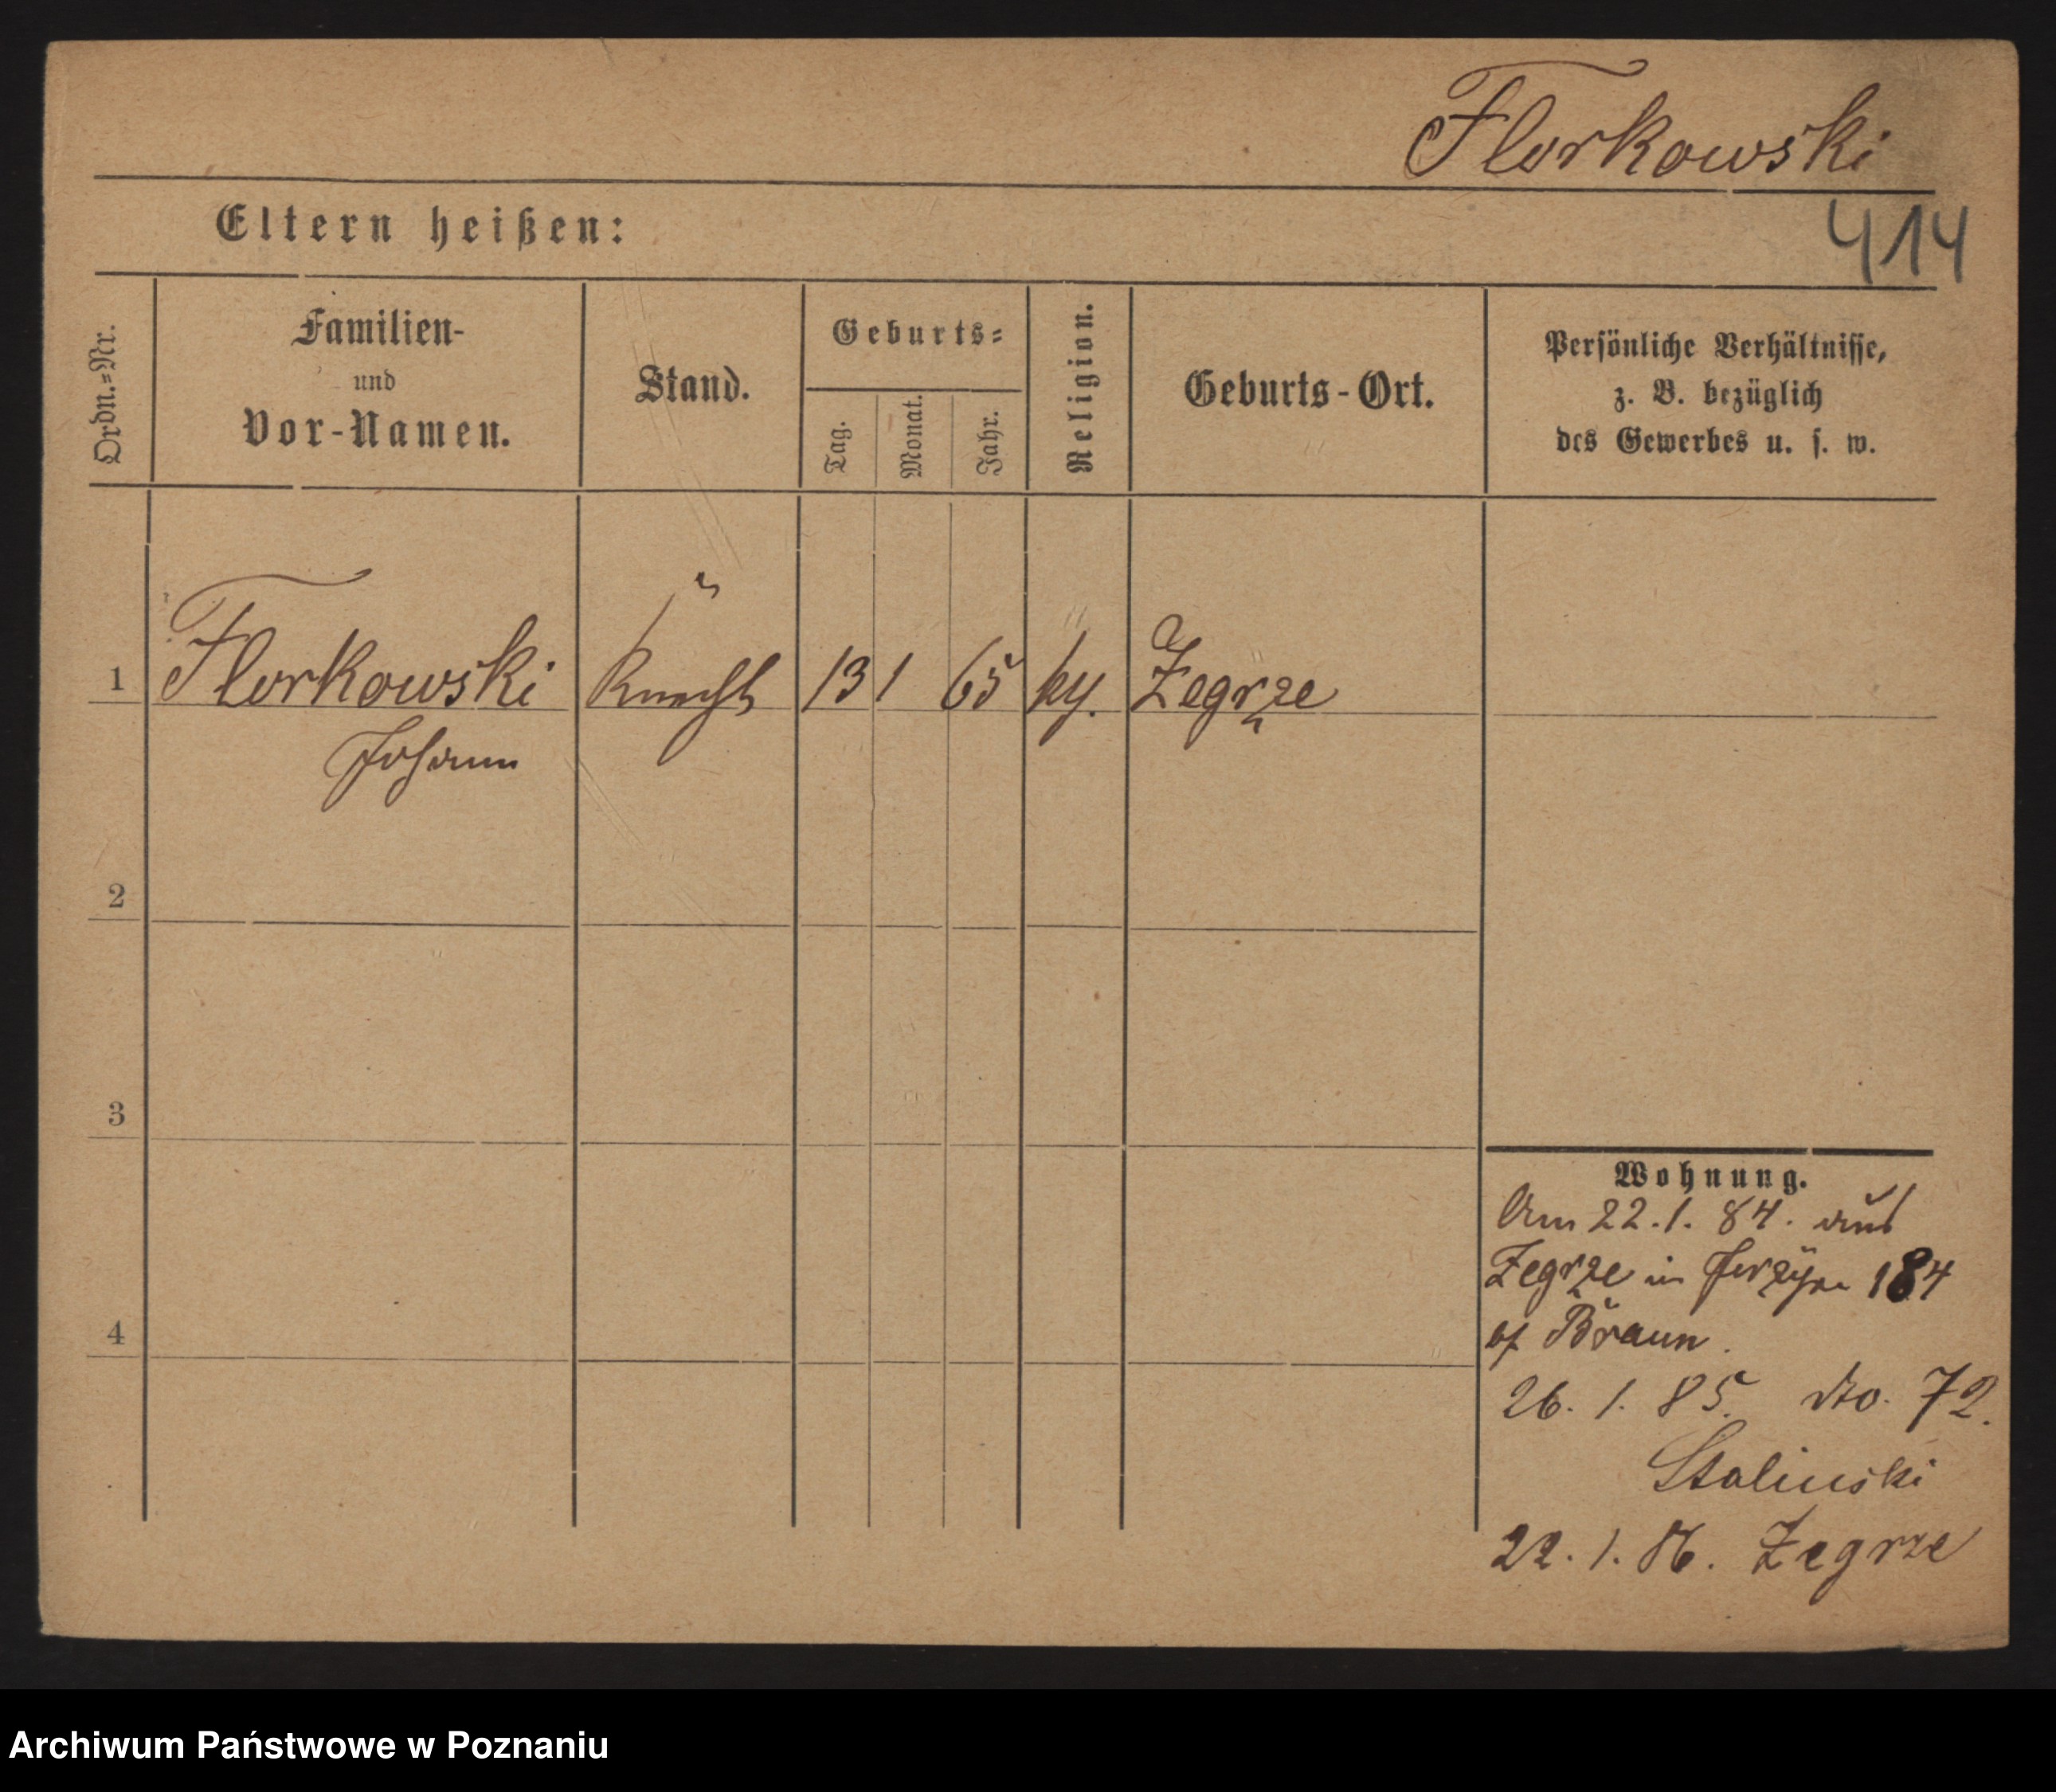 Florkowski
414
Eltern heißen:
Ordn.=Nr.
Familien-
und
Vor-Namen.
Stand.
Geburts=
Tag.
Monat.
Jahr.
Religion.
Geburts-Ort.
Persönliche Verhältnisse,
z. B. bezüglich
des Gewerbes u. s. w.
1 Florkowski Knecht 13 1 65 Zegrze
Johann
2
3
4
Wohnung.
Am 22.1.84. aus
Zegrze in 184
Braun.
26. 1. 85. dto. 72.
Stalinski
22. 1. 86. Zegrze
Archiwum Państwowe w Poznaniu